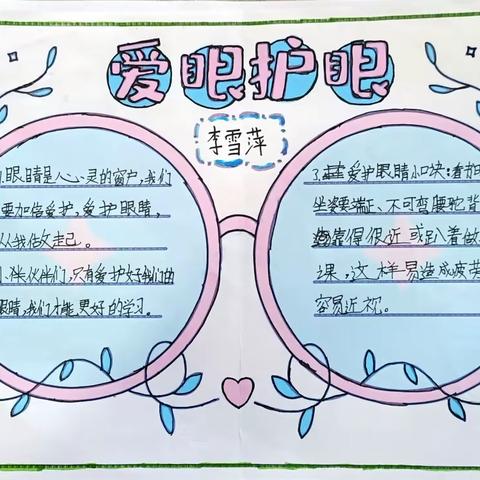 爱眼护眼
李雪萍
1.眼睛是心灵的窗户,我们
要加倍爱护,爱护眼睛,
从我做起。
小伙伴们,只有爱护好我们的
眼睛,我们才能更好的学习。
了 爱护眼睛小口块:看书
坐姿要端正、不可弯腰驼背
靠得很近或趴着做
课,这样易造成疲劳
容易近视。